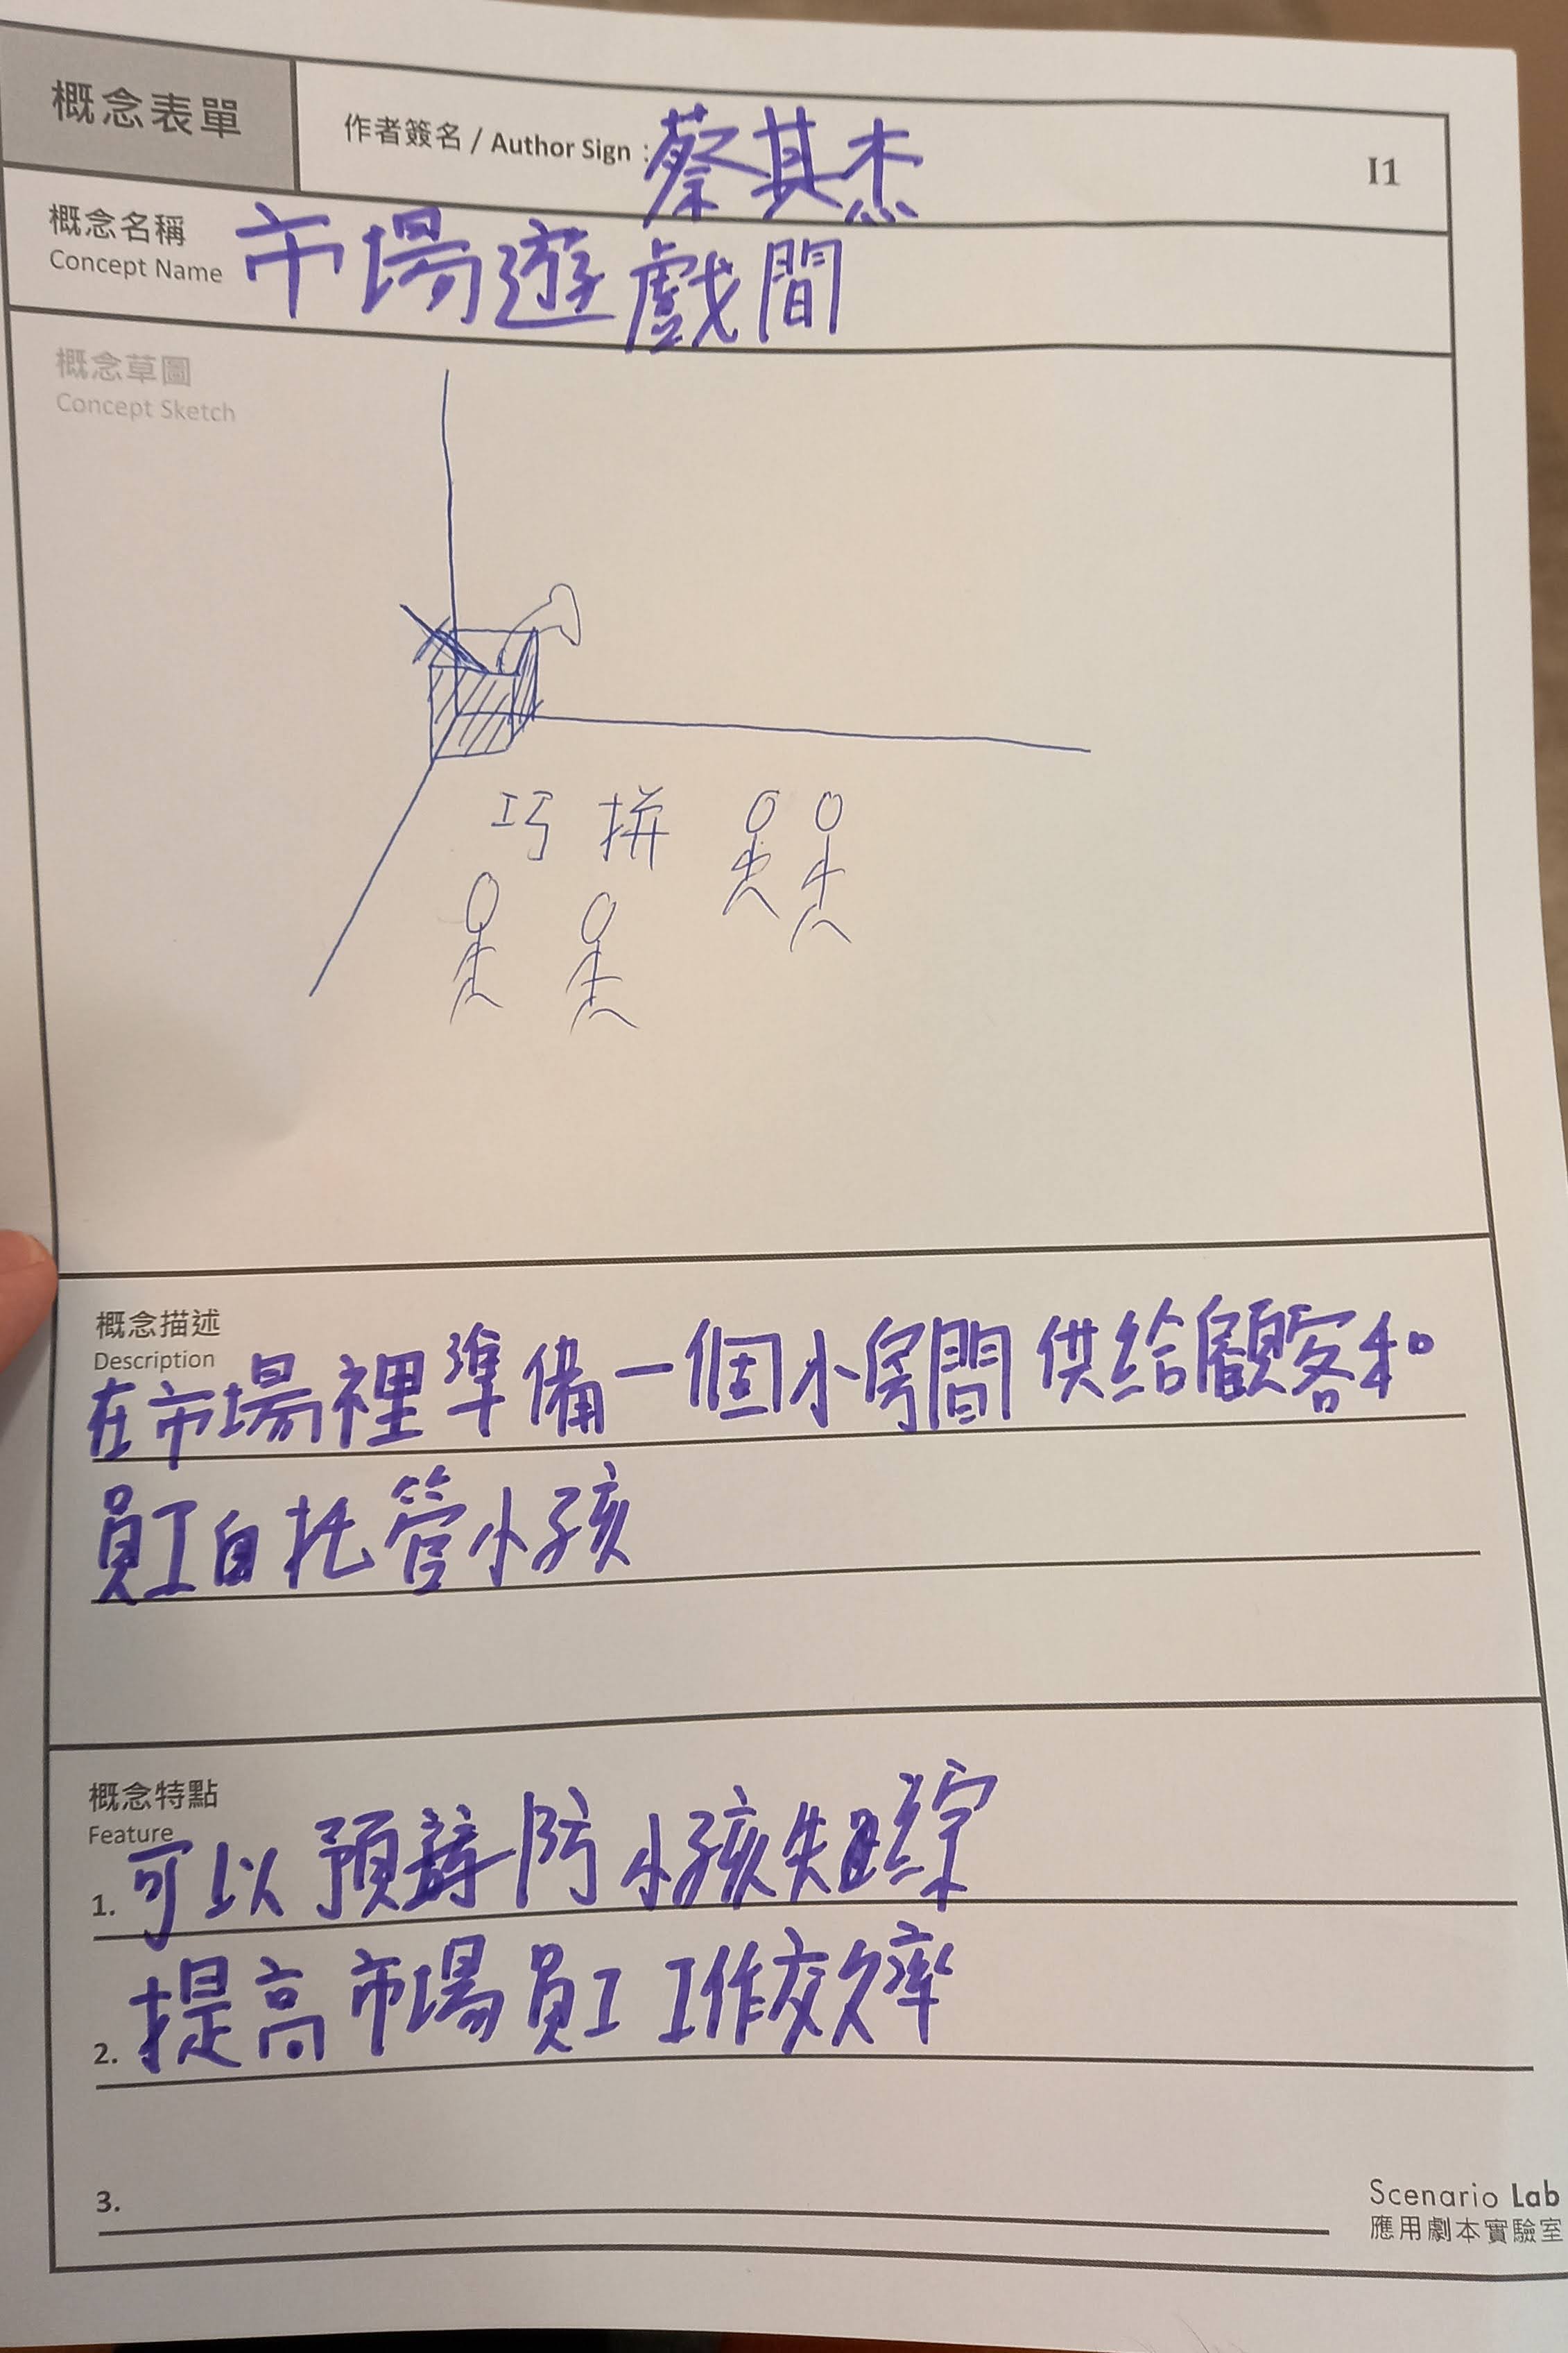 概念表單
作者簽名 / Author Sign : 蔡其杰
I1
概念名稱
Concept Name
市場遊戲間
概念草圖
Concept Sketch
巧拼
概念描述
Description
在市場裡準備一個小房間供給顧客和
員工自托管小孩
概念特點
Feature
1. 可以預防小孩失踪
2. 提高市場員工工作效率
3.
Scenario Lab
應用劇本實驗室